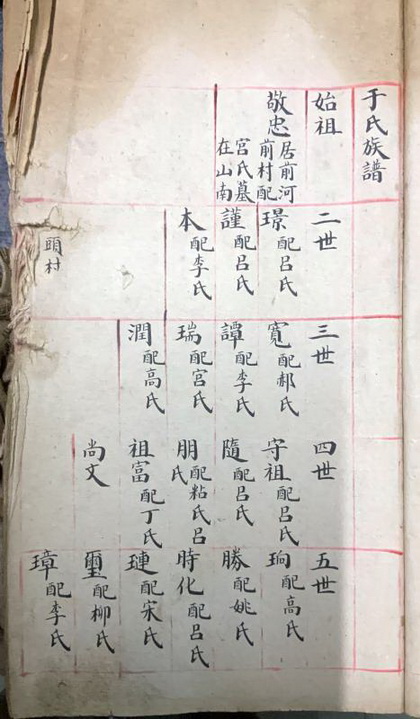 于氏族譜
始祖
敬忠 居前河前村配宮氏墓在山南
二世
璟 配呂氏
謹 配呂氏
本 配李氏
頭村
三世
寬 配郝氏
譚 配李氏
瑞 配宮氏
潤 配高氏
四世
守祖 配呂氏
隨 配呂氏
朋 配粘氏呂氏
祖富 配丁氏
尚文
五世
珦 配高氏
勝 配姚氏
時化 配呂氏
璉 配宋氏
璽 配柳氏
璋 配李氏